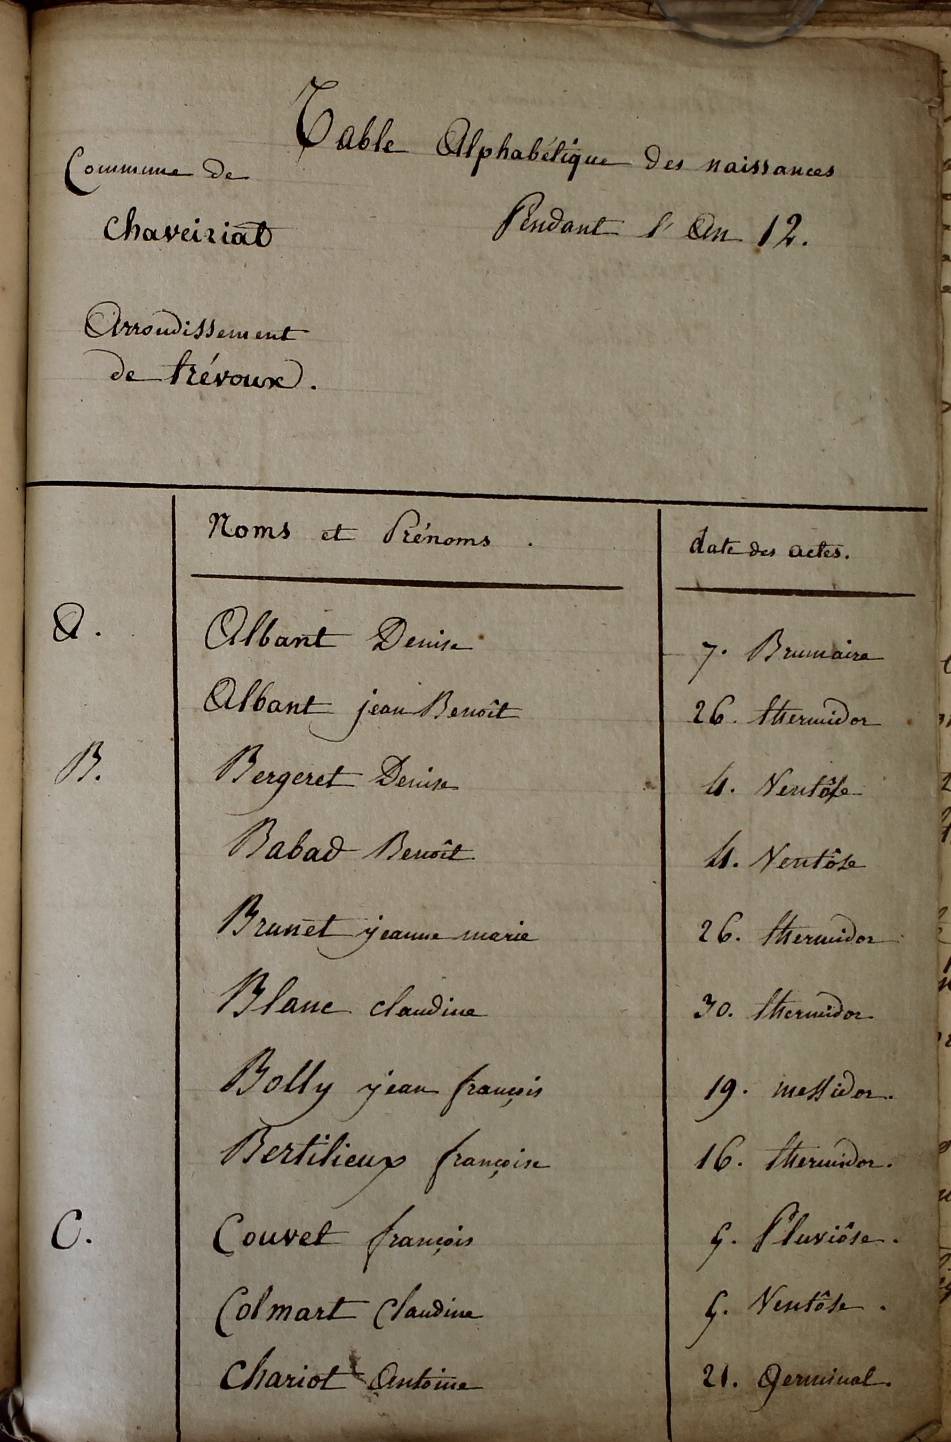 Table Alphabétique des naissances
Pendant l'An 12.
Commune de
Chaveiriat
Arrondissement
de trévoux.
Noms et Prénoms . date des actes.
A. Albant Denise 7. Brumaire
Albant jean Benoît 26. thermidor
B. Bergeret Denise 4. Ventôse
Babad Benoît 4. Ventôse
Brunet jeanne marie 26. thermidor
Blanc claudine 30. thermidor
Bolly jean françois 19. messidor.
Bertilieux françoise 16. thermidor.
C. Couvet françois 5. Pluviôse.
Colmart Claudine 5. Ventôse.
Chariot Antoine 21. Germinal.